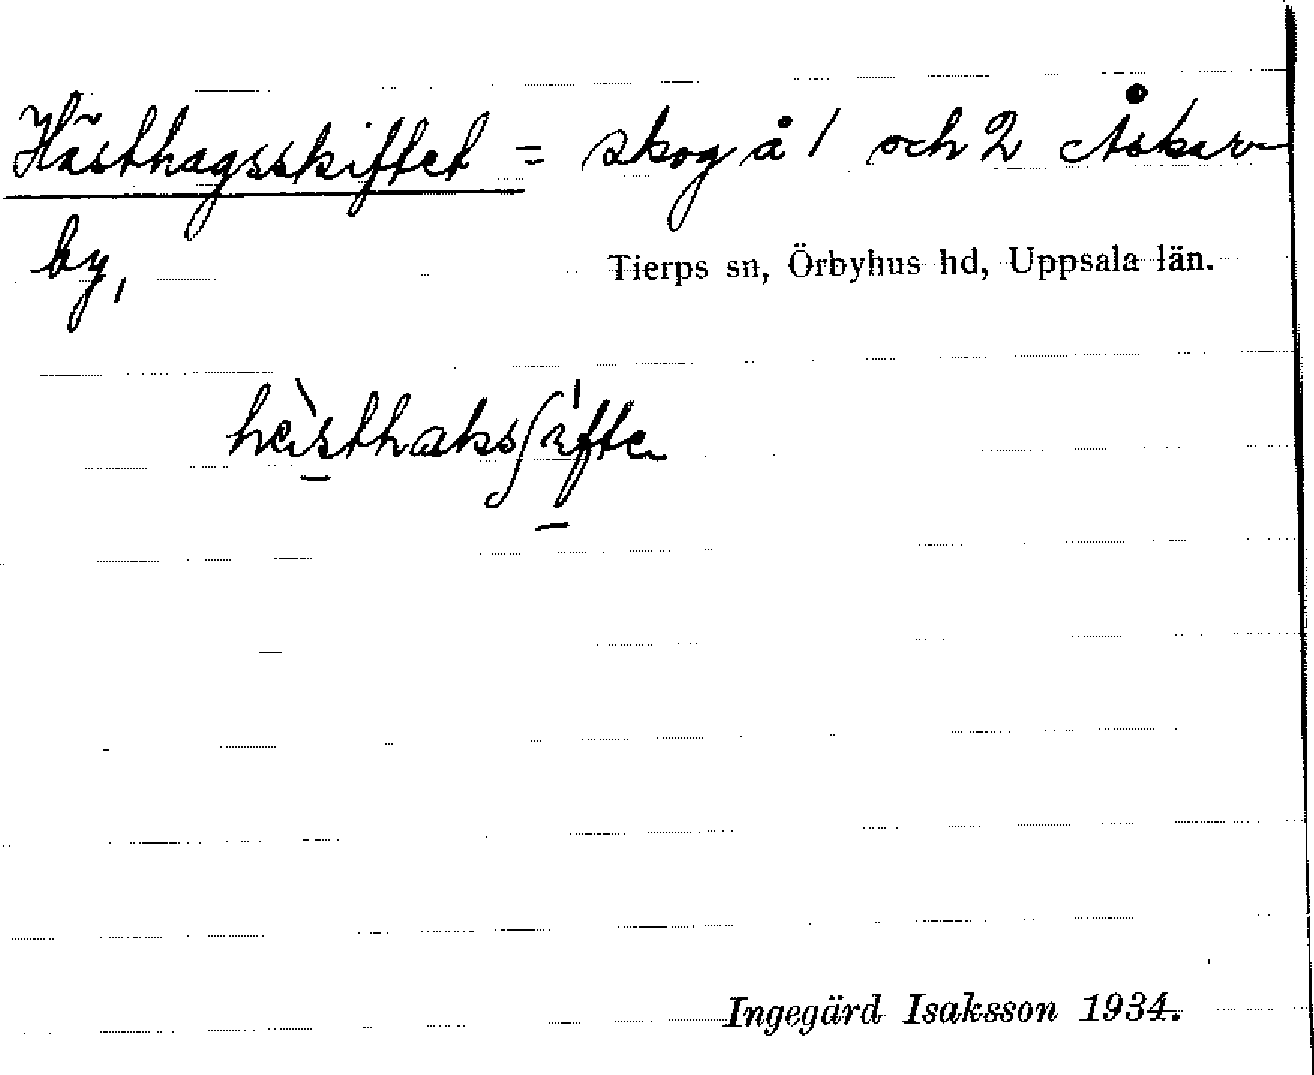 Hästhagsskiftet = skog å 1 och 2 Åskar
by,
Tierps sn, Örbyhus hd, Uppsala län.
Ingegärd Isaksson 1934.